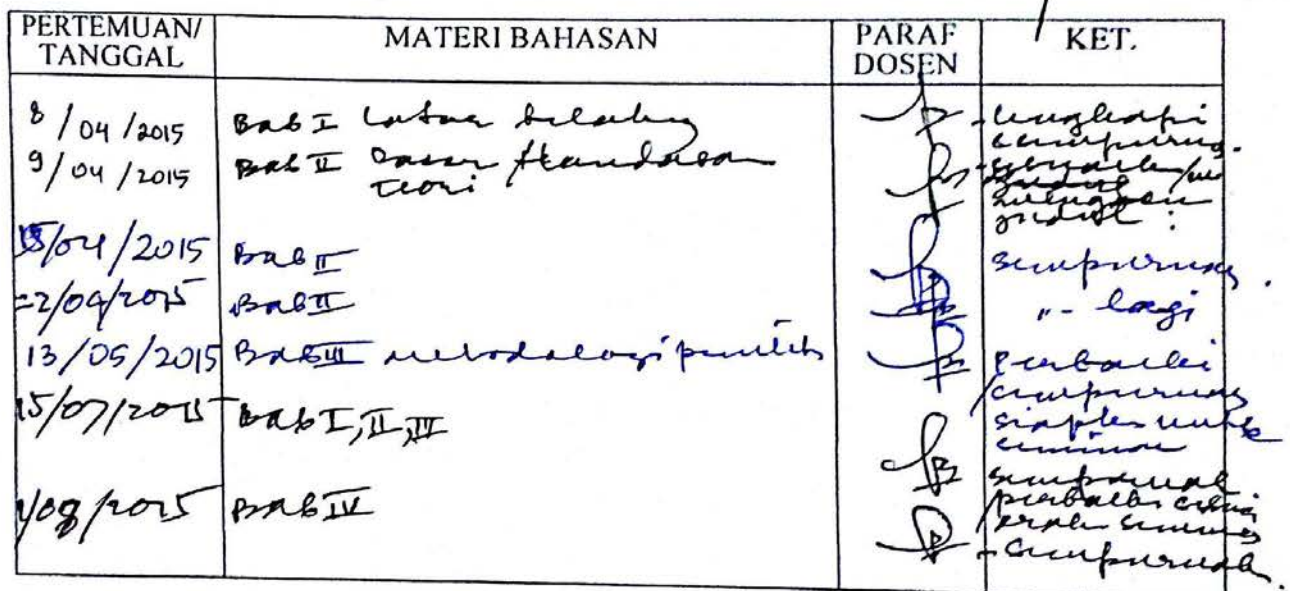 PERTEMUAN/ TANGGAL MATERI BAHASAN PARAF DOSEN KET.
8/04/2015 Bab I Latar belakang - lengkapi
sempurna.
9/04/2015 Bab II Dasar /Landasan
Teori
judul
15/04/2015 Bab II sempurna
22/04/2015 Bab II "- lagi
13/05/2015 Bab III metodologi penelit perbaiki
/sempurna
15/07/2015 Bab I, II, III siapkan untk
seminar
/08/2015 Bab IV sempurnak
/perbaiki
- sempurnak.